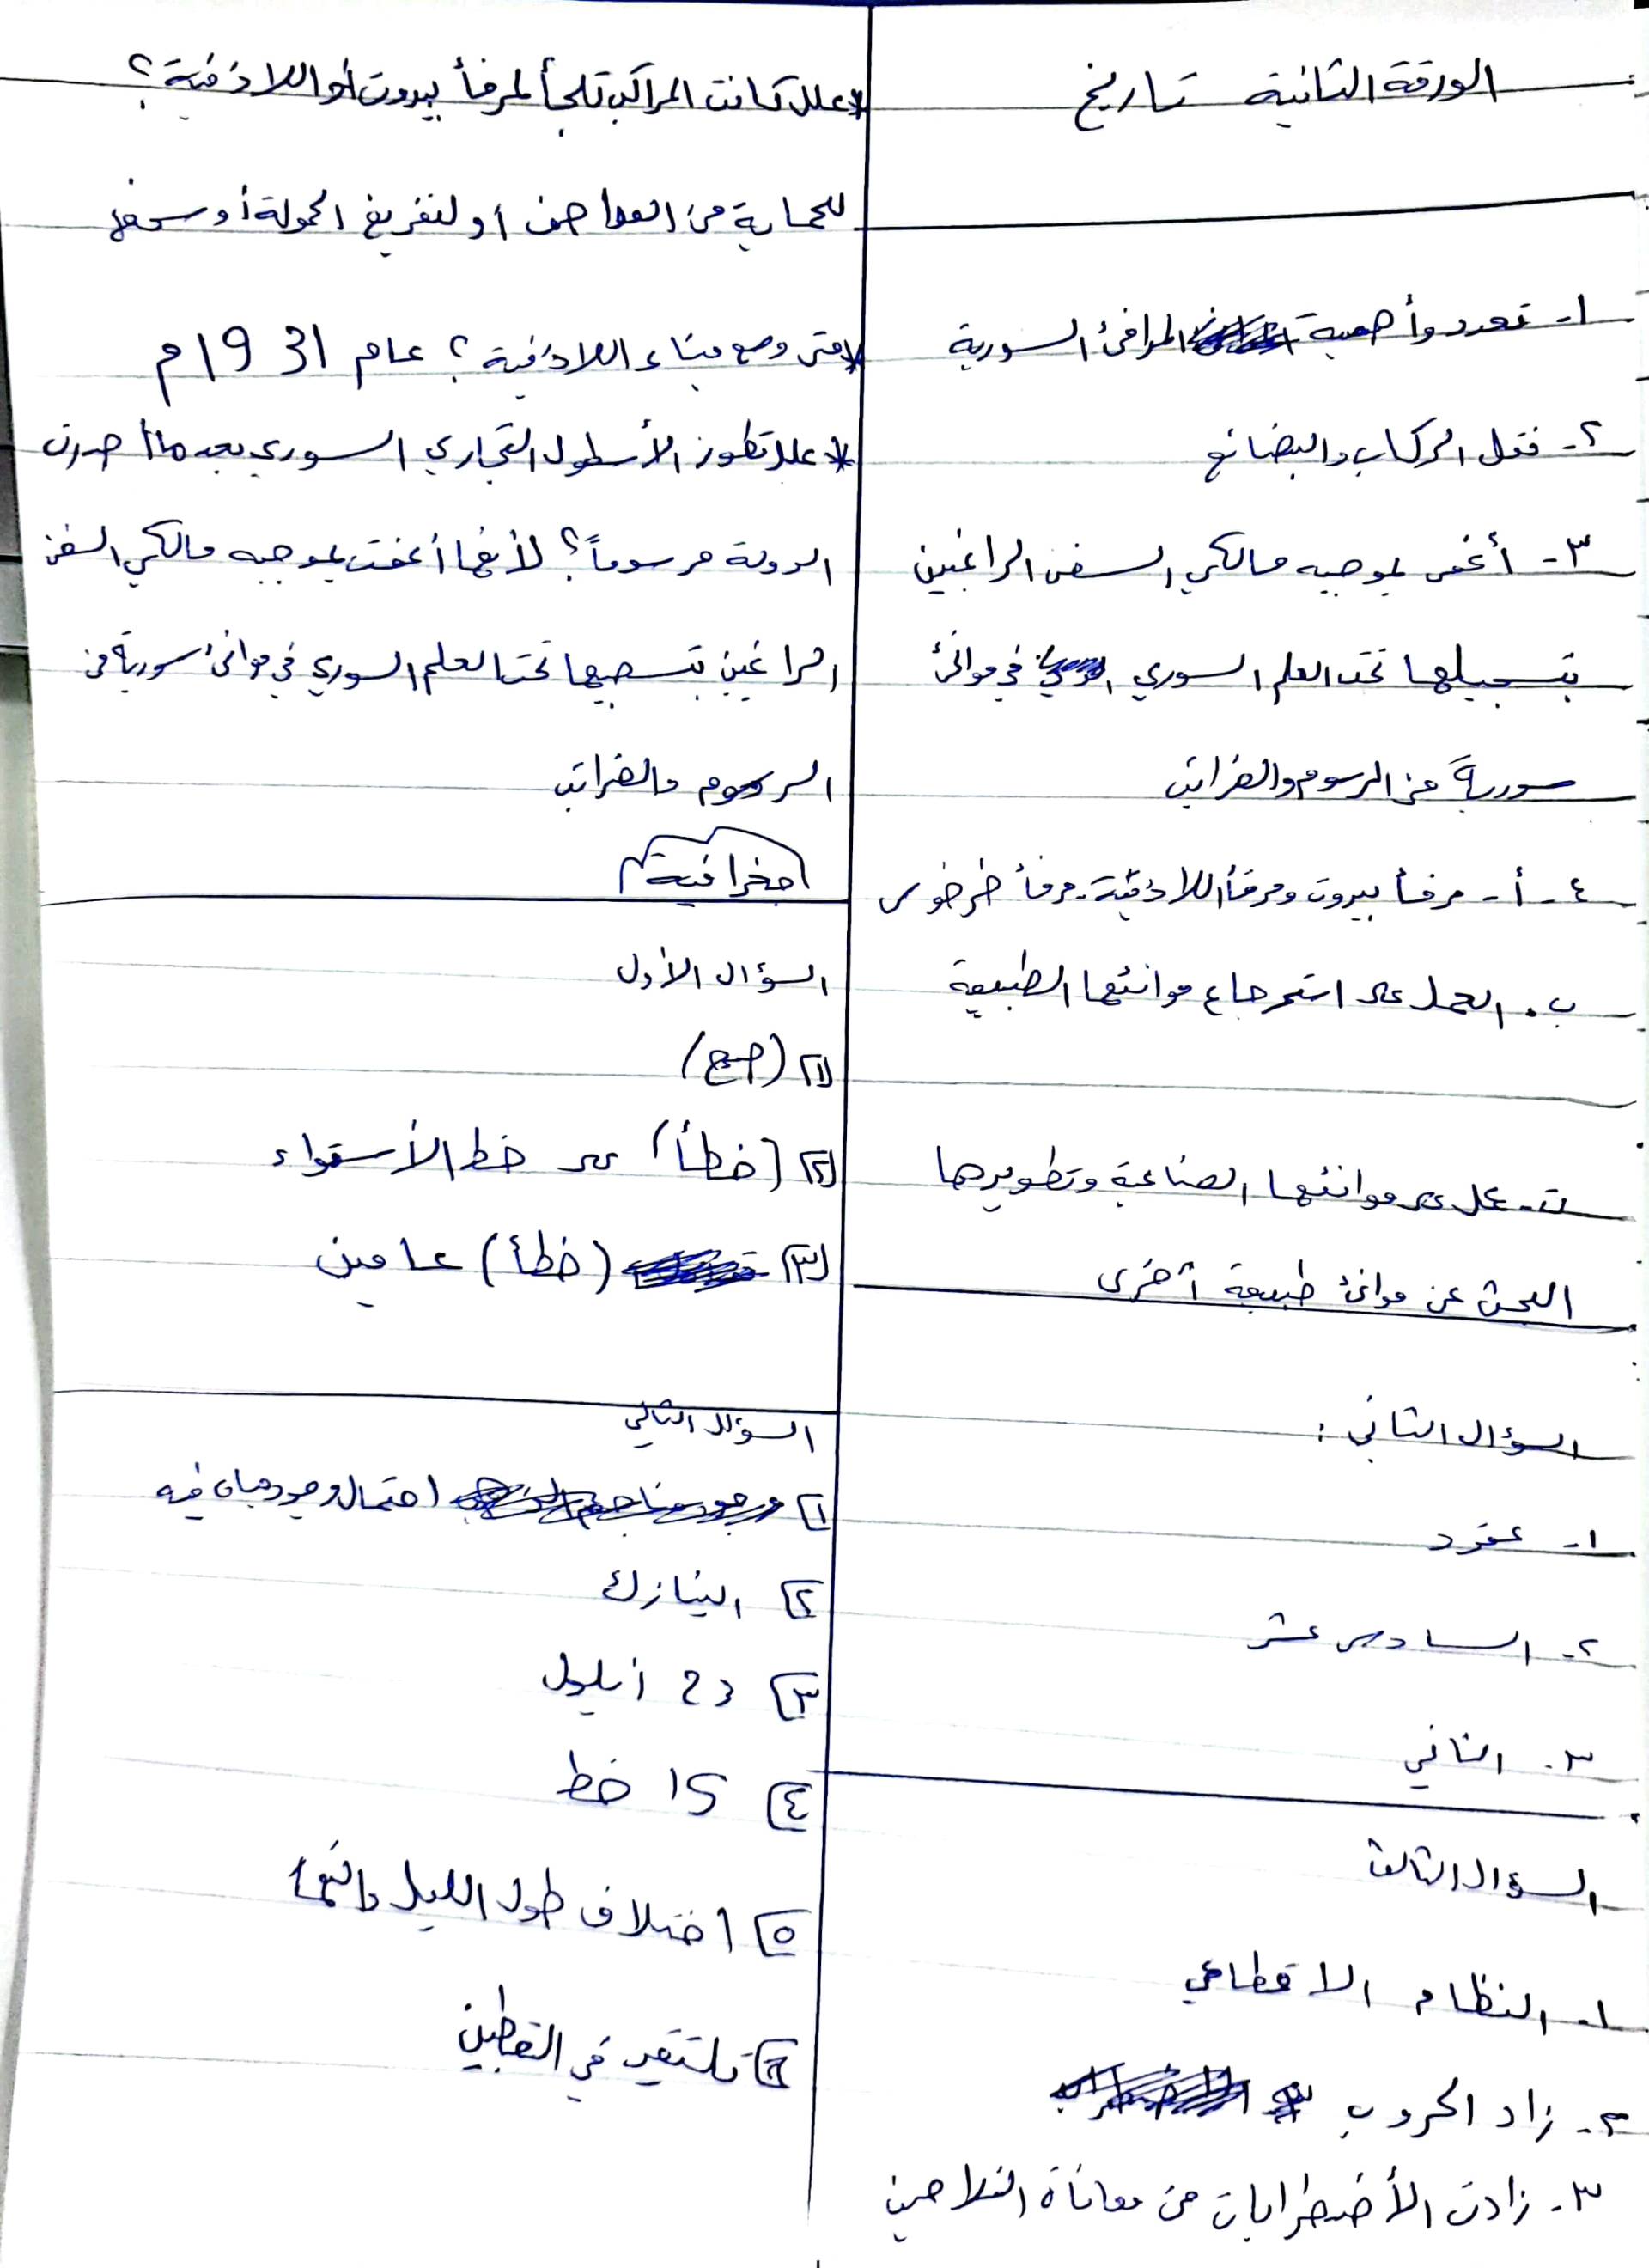 الورقة الثانية تاريخ
١- تعدد وأهمية المرافئ السورية
٢- نقل الركاب والبضائع
٣- أعفى بموجبه مالكي السفن الراغبين
بتسجيلها تحت العلم السوري في موانئ
سورية من الرسوم والضرائب
٤- أ- مرفأ بيروت ومرفأ اللاذقية - مرفأ طرطوس
ب. العمل على استرجاع موانئها الطبيعية
ت- على موانئها الصناعية وتطويرها
البحث عن موانئ طبيعية أخرى
السؤال الثاني :
١-
٢- السادس عشر
٣. الثاني
السؤال الثالث
١- النظام الاقطاعي
٢- زاد الحروب
٣- زادت الأضطرابات من معاناة الفلاحين
* علل كانت المراكب تلجأ لمرفأ بيروت أو اللاذقية ؟
للحماية من العواصف أو لتفريغ الحمولة أو
* متى وضع ميناء اللاذقية ؟ عام 1931 م
* علل تطور الأسطول التجاري السوري بعدما أصدرت
الدولة مرسوماً ؟ لأنها أعفت بموجبه مالكي السفن
الراغبين تحت العلم السوري في موانئ سورية من
الرسوم والضرائب
جغرافية
السؤال الأول
١) (صح)
٢) (خطأ) على خط الأستواء
٣) (خطأ) عامين
السؤال الثاني
١) احتمال وجود مياه فيه
٢) النيازك
٣) 23 أيلول
٤) 15 خط
٥) اختلاف طول الليل والنهار
٦) تلتقي في القطبين